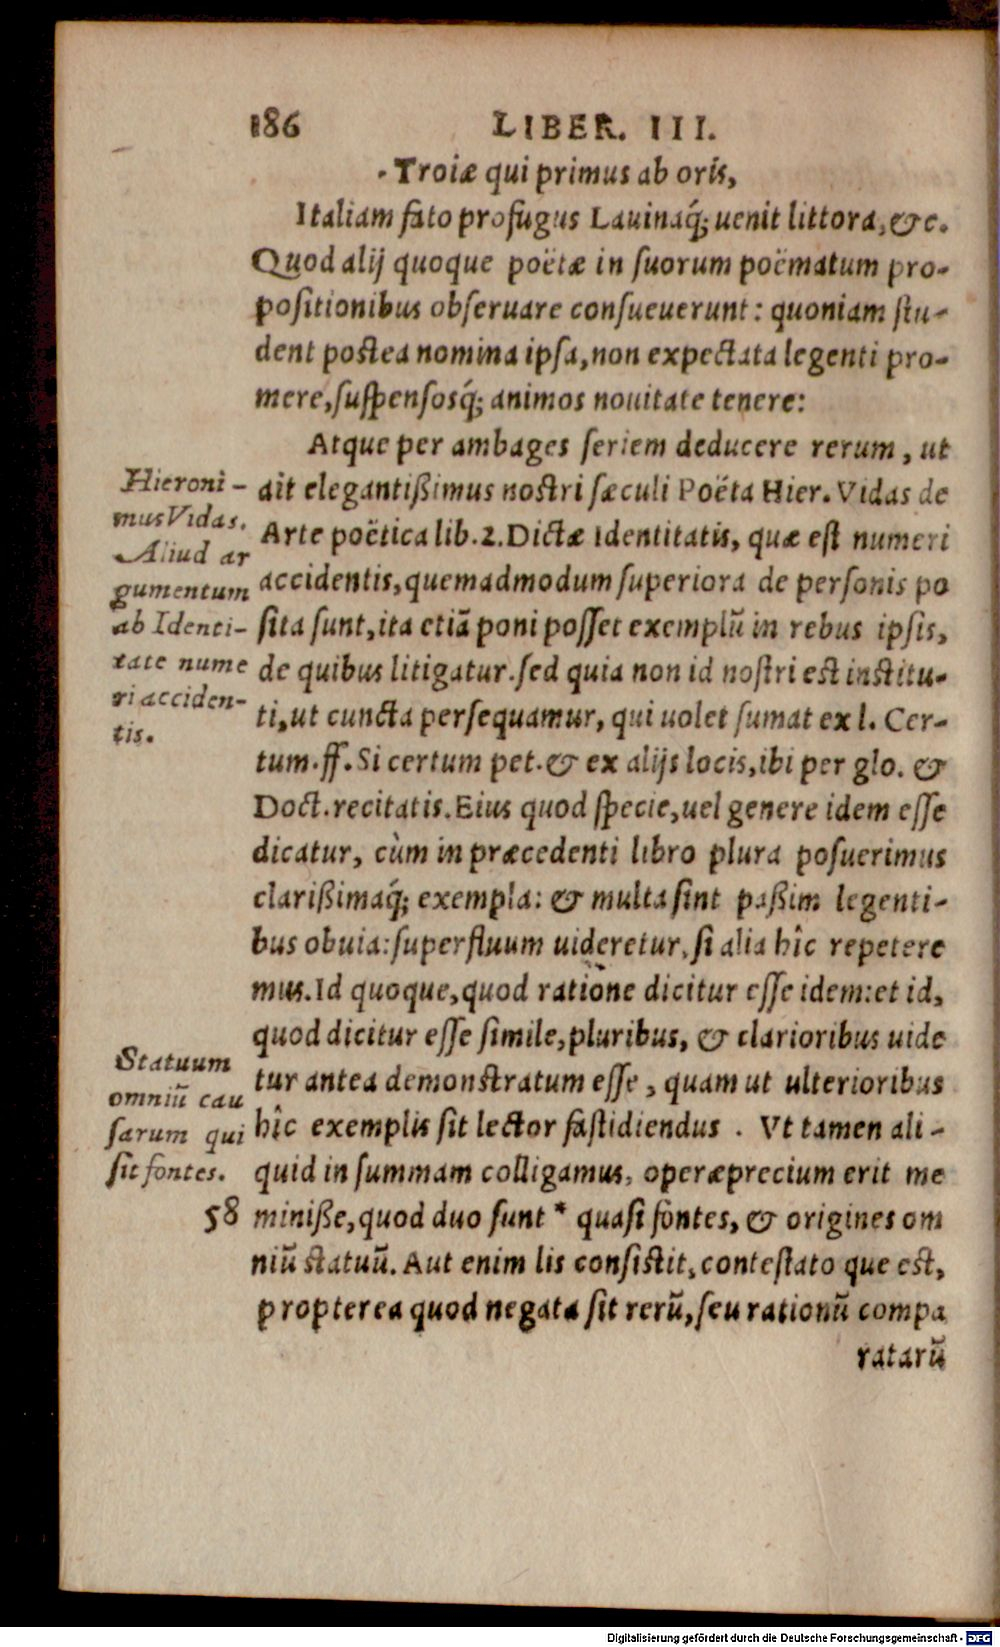 186 LIBER. III.
Troiæ qui primus ab oris,
Italiam fato profugus Lauinaq́; uenit littora, &c.
Quod alij quoque poëtæ in suorum poëmatum pro-
positionibus obseruare consueuerunt: quoniam stu-
dent postea nomina ipsa, non expectata legenti pro-
mere, suspensosq́; animos nouitate tenere:
Atque per ambages seriem deducere rerum, ut
ait elegantißimus nostri sæculi Poëta Hier. Vidas de
Arte poëtica lib. 2. Dictæ Identitatis, quæ est numeri
accidentis, quemadmodum superiora de personis po
sita sunt, ita etiā poni posset exemplū in rebus ipsis,
de quibus litigatur. sed quia non id nostri est institu-
ti, ut cuncta persequamur, qui uolet sumat ex l. Cer-
tum. ff. Si certum pet. & ex alijs locis, ibi per glo. &
Doct. recitatis. Eius quod specie, uel genere idem esse
dicatur, cùm in præcedenti libro plura posuerimus
clarißimaq́; exempla: & multa sint paßim legenti-
bus obuia: superfluum uideretur, si alia hîc repetere
mus. Id quoque, quod ratione dicitur esse idem: et id,
quod dicitur esse simile, pluribus, & clarioribus uide
tur antea demonstratum esse, quam ut ulterioribus
hîc exemplis sit lector fastidiendus. Vt tamen ali-
quid in summam colligamus, operæprecium erit me
miniße, quod duo sunt * quasi fontes, & origines om
niū statuū. Aut enim lis consistit, contestato que est,
propterea quod negata sit rerū, seu rationū compa
ratarū
Hieroni-
mus Vidas.
Aliud ar
gumentum
ab Identi-
tate nume
ri acciden-
tis.
Statuum
omniū cau
sarum qui
sit fontes.
58
Digitalisierung gefördert durch die Deutsche Forschungsgemeinschaft - DFG